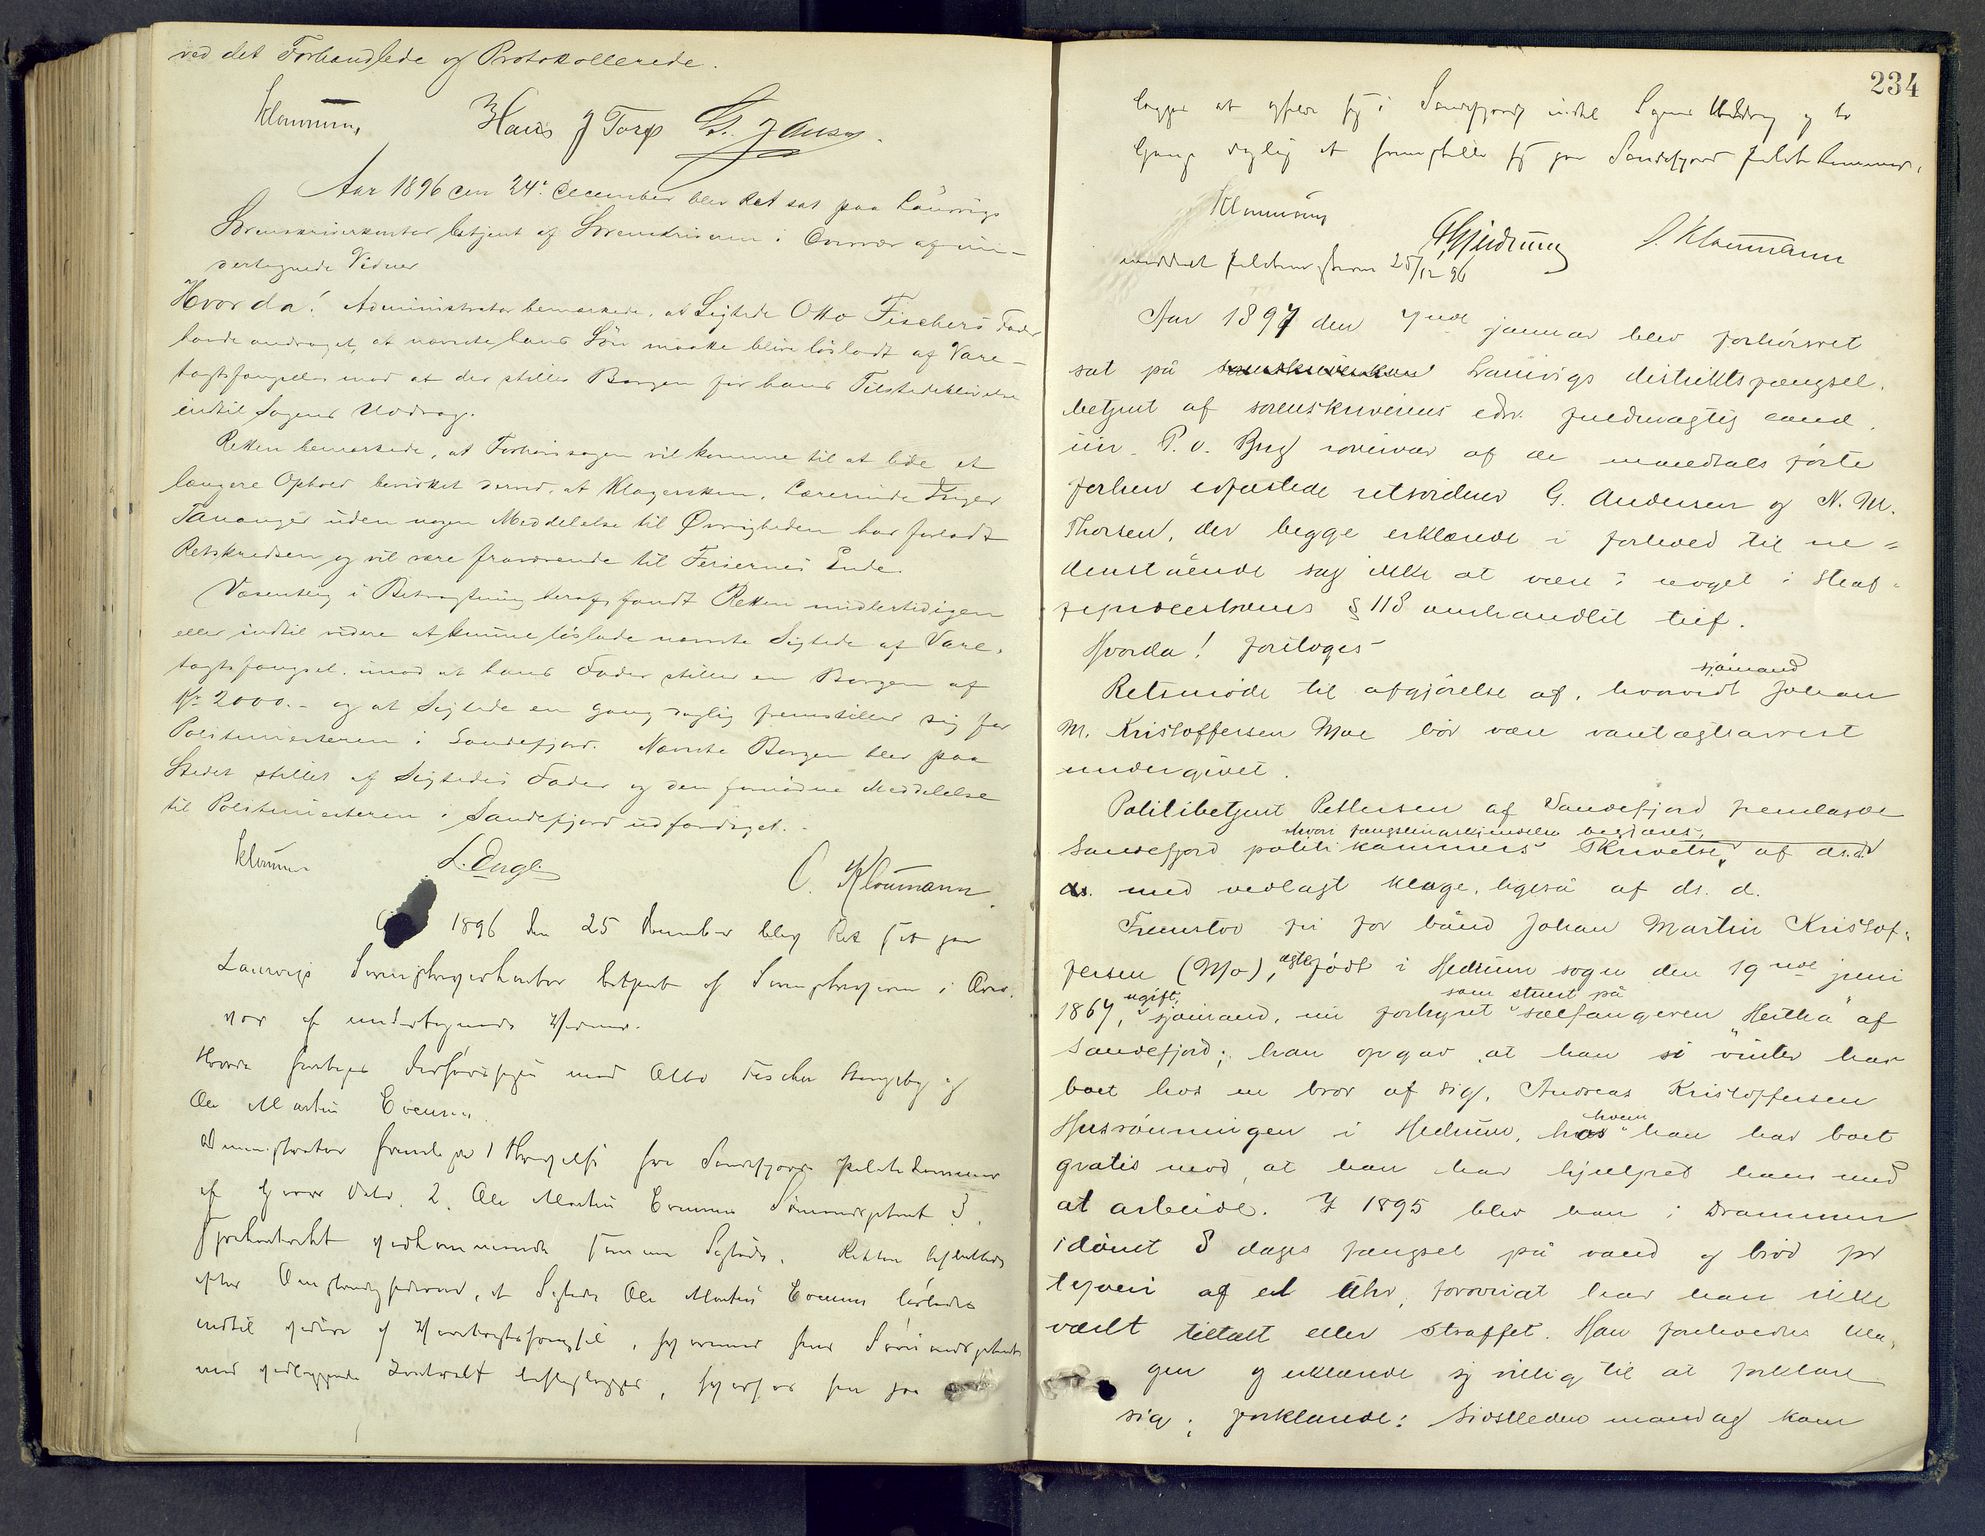 ved det Forhandlede og Protokollerede.
Kloumann Hans J Torp
Aar 1896 den 24de December blev Ret sat paa Laurvigs
Sorenskriverkontor betjent af Sorenskriveren i Overvær af un-
dertegnede Vidner
Hvorda! Administrator bemærkede, at Sigtede Otto Fischers Fader
havde andraget, at nævnte hans Sön maatte blive løsladt af Vare-
tægtsfængslet mod at der stilles Borgen for hans Tilstedeblivelse
indtil Sagens Uddrag.
Retten bemærkede, at Forhørssagen vil komme til at lide et
længere Ophold bevirket derved, at Klagersken, Lærerinde Inger
Tananger uden nogen Meddelelse til Øvrigheden har forladt
Retskredsen og vil være fraværende til Feriernes Ende.
Væsentlig i Betragtning heraf fandt Retten midlertidigen
eller indtil videre at kunne løslade nævnte Sigtede af Vare-
tægtsfængsel imod at hans Fader stiller en Borgen af
Kr 2000.- og at Sigtede en gang daglig fremstiller sig for
Politimesteren i Sandefjord. Nævnte Borgen blev paa
Stedet stillet af Sigtedes Fader og den fornødne Meddelelse
til Politimesteren i Sandefjord udfærdiget.
Klouman L. Enge O. Kloumann.
1896 den 25 December blev Ret sat paa
Laurvigs Sorenskriverkontor betjent af Sorenskriveren i Over-
vær af undertegnede Vidner.
Hvorda foretoges Forhørssagen mod Otto Fischer og
Ole Martin Evensen.
Administrator fremlagde 1 Skrivelse fra Sandefjords politikammer
af Gaars Dato, 2. Ole Martin Evensens Sømandspatent 3.
vedkommende samme Sigtede. Retten besluttede
efter Omstændighederne, at Sigtede Ole Martin Evensen løslades
indtil videre af Varetægtsfængsel, hvorimod hans Sømandspatent
med vedliggende Kontrakt beslaglægges, hvorhos han paa
234
lægges at opholde sig i Sandefjord indtil Sagens Uddrag og to
Gange daglig at fremstille sig paa Sandefjord politikammer.
Kloumann Gjedrum O. Kloumann
meddelt 25/12 96
Aar 1897 den 7nde januar blev forhörsret
sat på Laurvigs distriktsfængsel,
betjent af sorenskriverens edsv. fuldmægtig cand.
jur. P. v. Bug i overvær af de mandtalsførte
forhen edfæstede retsvidner G. Andersen og N. M.
Thorsen, der begge erklærede i forhold til ne-
denstående sag ikke at være i noget i Straf-
feproceslovens § 118 omhandlet tilf.
Hvorda! foretoges
Retsmøde til afgjörelse af, hvorvidt sjømand Johan
M. Kristoffersen Moe bör være varetægtsarrest
undergivet.
Politibetjent Pettersen af Sandefjord fremlagde
Sandefjord politikammers skrivelse, hvori fængslingskjendelse begjæres, af d.d.
med vedlagt klage, ligeså af ds. d.
Fremstod fri for bånd Johan Martin Kristof-
fersen (Mo), ægtefödt i Hedrum sogn den 19nde juni
1867, ugift, sjömand, nu forhyret som stuert på sælfangeren "Hertha" af
Sandefjord; han opgav, at han i vinter har
boet hos en bror af sig, Andreas Kristoffersen
i Hedrum, hos hvem han har boet
gratis mod, at han har hjulpet ham med
at arbeide. I 1895 blev han i Drammen
idömt 8 dages fængsel på vand og bröd for
tyveri af et Uhr, forövrigt har han ikke
været tiltalt eller straffet. Han foreholdes kla-
gen og erklærede sig villig til at forklare
sig; forklarede: Sidstleden mandag kom